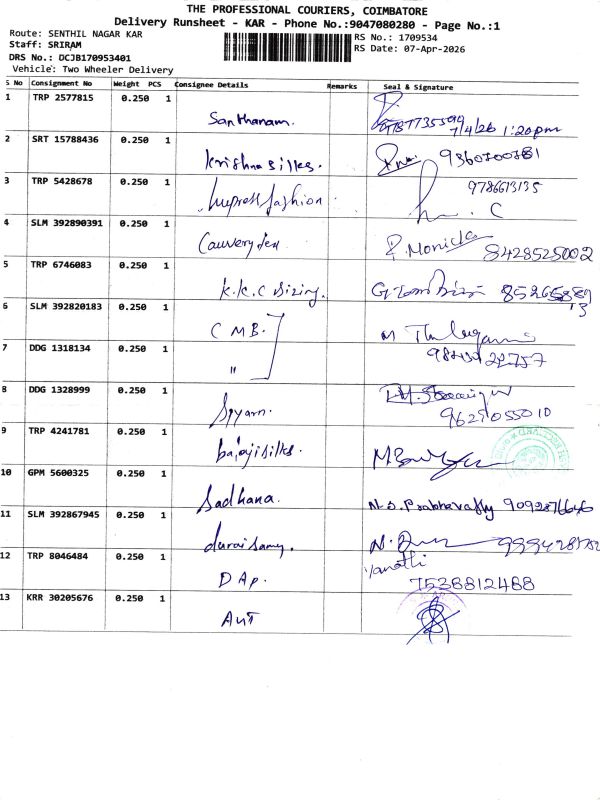 THE PROFESSIONAL COURIERS, COIMBATORE
Delivery Runsheet - KAR - Phone No.:9047080280 - Page No.:1
Route: SENTHIL NAGAR KAR
Staff: SRIRAM
DRS No.: DCJB170953401
Vehicle: Two Wheeler Delivery
RS No.: 1709534
RS Date: 07-Apr-2026
S No Consignment No Weight PCS Consignee Details Remarks Seal & Signature
1 TRP 2577815 0.250 1 Santhanam. 7/4/26 1:20pm
2 SRT 15788436 0.250 1 Krishna silks.
3 TRP 5428678 0.250 1 Impress fashion 9786613135
4 SLM 392890391 0.250 1 P. Monicka 8428525002
5 TRP 6746083 0.250 1 K.K.C sizing.
6 SLM 392820183 0.250 1 C M B.
7 DDG 1318134 0.250 1 "
8 DDG 1328999 0.250 1 9629055010
9 TRP 4241781 0.250 1 balaji silks.
10 GPM 5600325 0.250 1 Sadhana.
11 SLM 392867945 0.250 1 duraisamy.
12 TRP 8046484 0.250 1 D Ap. 7538812488
13 KRR 30205676 0.250 1